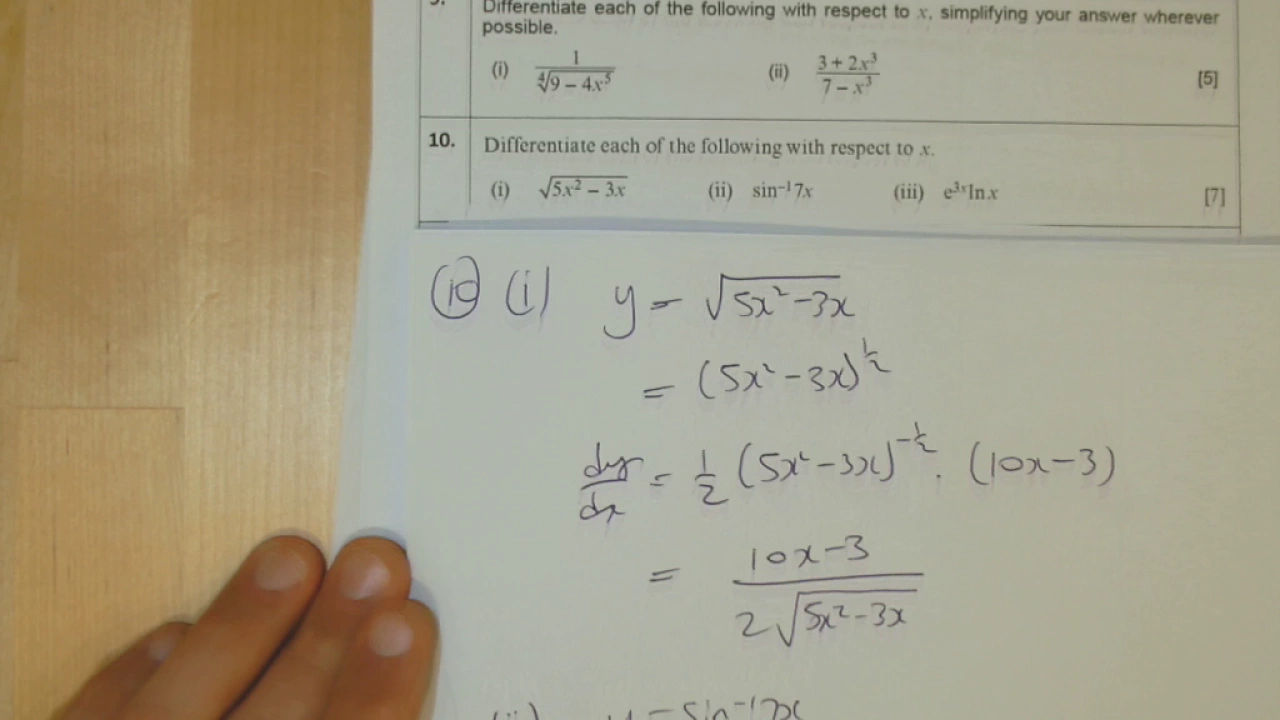 Differentiate each of the following with respect to x, simplifying your answer wherever
possible.
(i) 1/⁴√(9 − 4x⁵) (ii) (3 + 2x³)/(7 − x³) [5]
10. Differentiate each of the following with respect to x.
(i) √(5x² − 3x) (ii) sin⁻¹7x (iii) e³ˣlnx [7]
(10) (i) y = √(5x² − 3x)
= (5x² − 3x)^½
dy/dx = ½ (5x² − 3x)^−½ . (10x − 3)
= (10x − 3)/(2√(5x² − 3x))
(ii) y = sin⁻¹7x